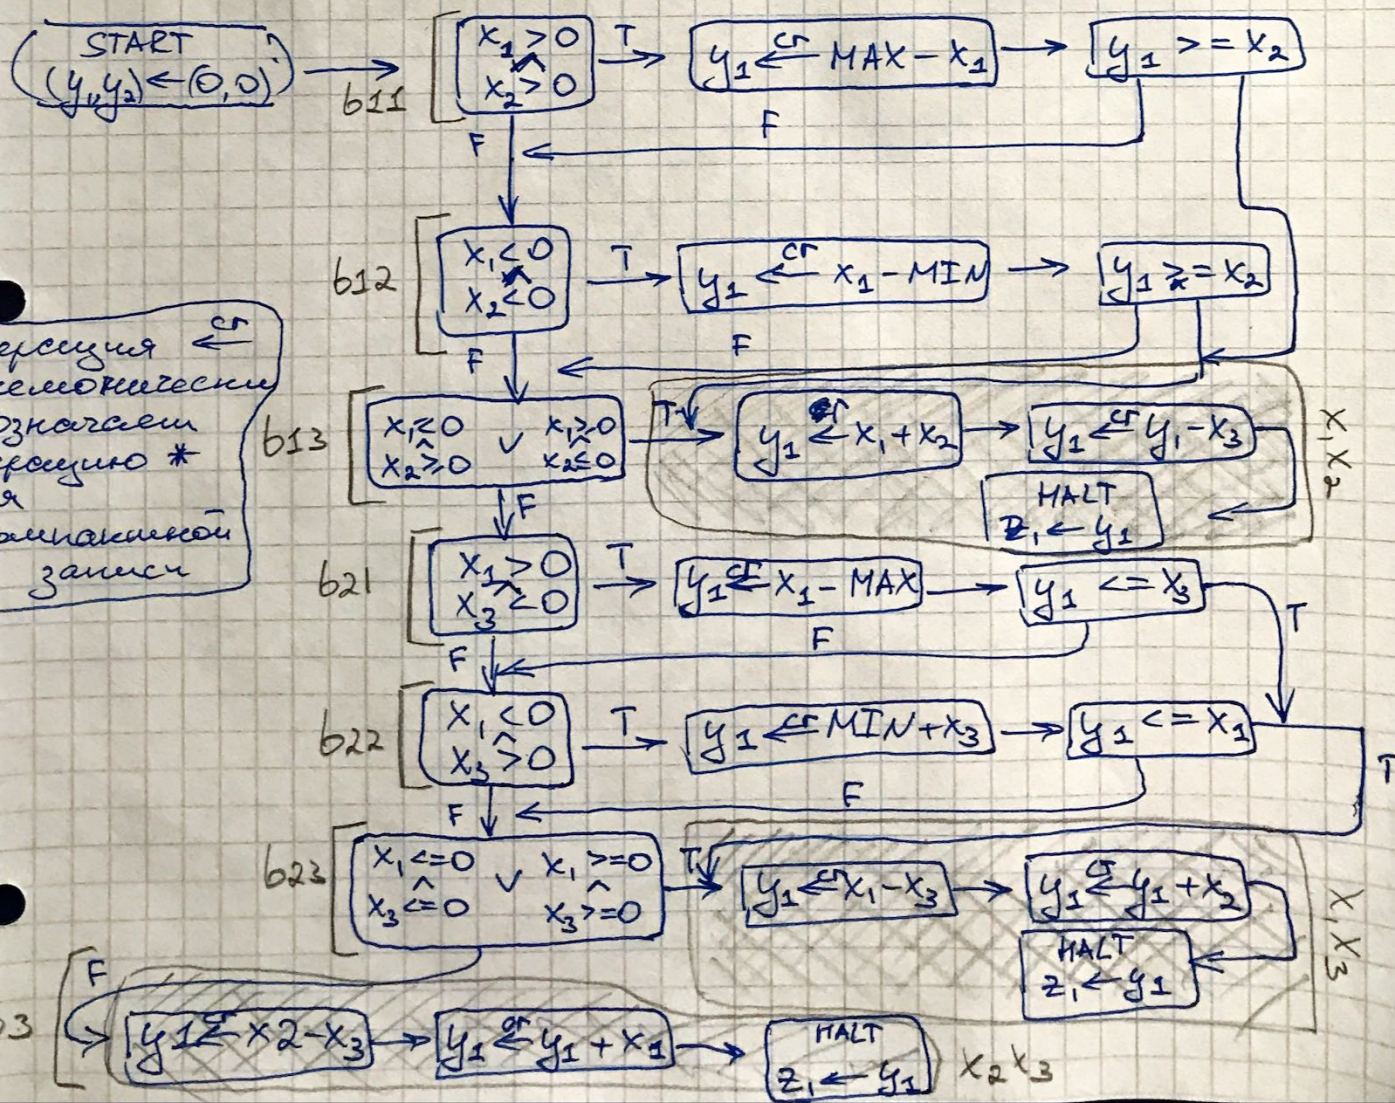 START
(y₁,y₂)←(0,0)
b11
x₁>0
^
x₂>0
T
y₁ ←ст MAX-x₁
y₁ >= x₂
F
F
b12
x₁<0
^
x₂<0
T
y₁ ←ст x₁-MIN
y₁ >= x₂
F
F
ерация ←ст
означаем
рацию *
я
записи
b13
x₁≤0 ∨ x₁≥0
^
x₂≥0 x₂≤0
T
y₁ ←ст x₁+x₂
y₁ ←ст y₁-x₃
HALT
z₁←y₁
x₁x₂
F
b21
x₁>0
^
x₃<0
T
y₁ ←ст x₁-MAX
y₁ <= x₃
T
F
F
b22
x₁<0
^
x₃>0
T
y₁ ←ст MIN+x₃
y₁ <= x₁
T
F
F
b23
x₁<=0 ∨ x₁>=0
^ ^
x₃<=0 x₃>=0
T
y₁ ←ст x₁-x₃
y₁ ←ст y₁+x₂
HALT
z₁←y₁
x₁x₃
F
3
y1 ←ст x2-x₃
y₁ ←ст y₁+x₁
HALT
z₁←y₁
x₂x₃